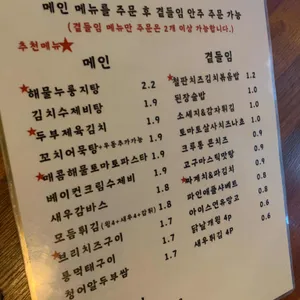 메인 메뉴를 주문 후 곁들임 안주 주문 가능
(곁들임 메뉴만 주문은 2개 이상 가능합니다.)
추천메뉴★
메인
★해물누룽지탕 2.2
김치수제비탕 1.9
★두부제육김치 1.9
꼬치어묵탕+우동추가가능 1.9
★매콤해물토마토파스타 1.9
베이컨크림수제비 1.9
새우감바스 1.8
모듬튀김 1.8
★브리치즈구이 1.7
통먹태구이 1.7
청어알두부쌈 1.7
곁들임
★철판치즈김치볶음밥 1.2
된장술밥 1.0
소세지&감자튀김 1.0
토마토살사치즈나쵸 1.0
크루통 콘치즈 0.9
고구마스틱맛탕 0.9
★짜계치&파김치 0.9
파인애플샤베트 0.8
아이스연유망고 0.8
닭날개튀김 4P 0.6
새우튀김 4P 0.6